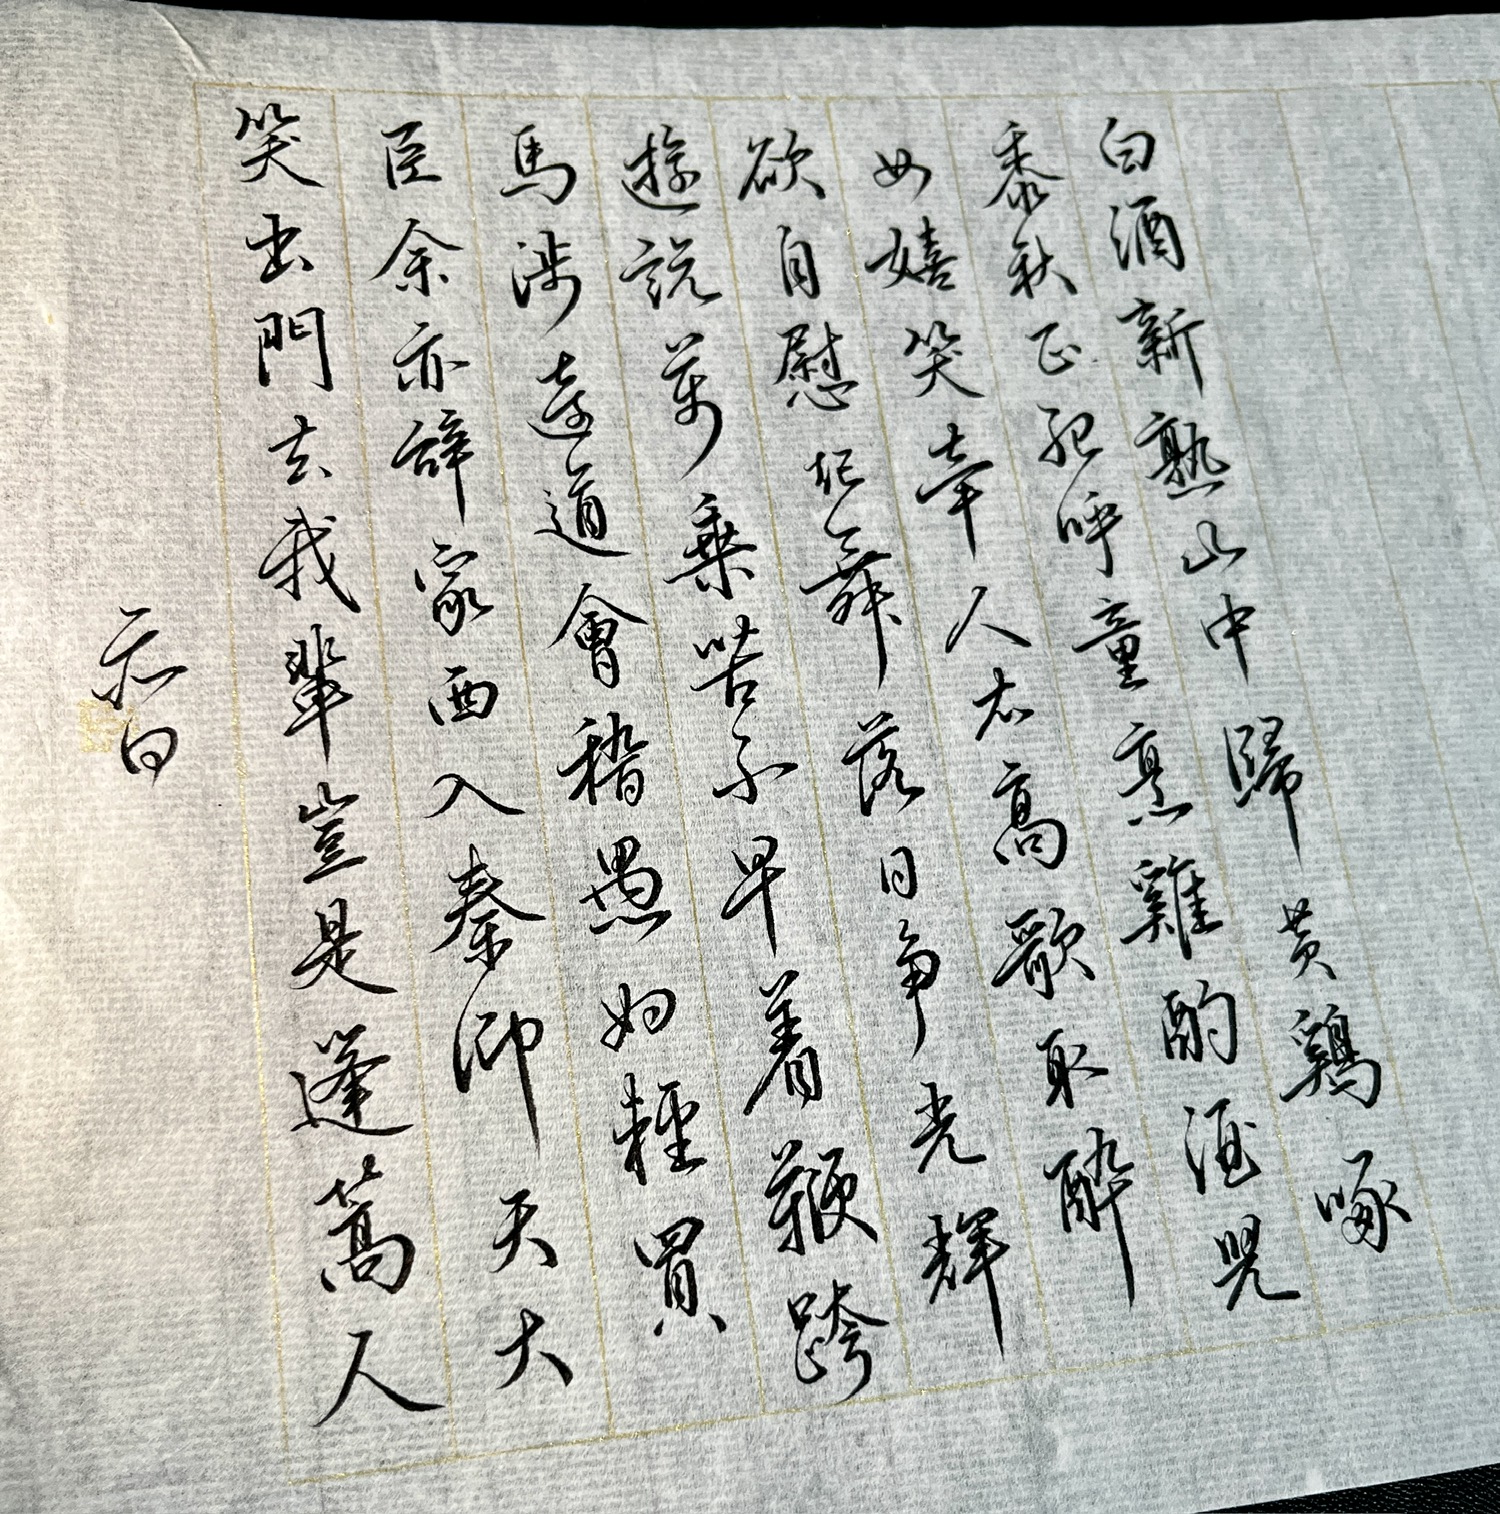 白酒新熟山中歸黄鷄啄
黍秋正肥呼童烹雞酌酒兒
女嬉笑牽人衣高歌取醉
欲自慰起舞落日争光輝
遊説萬乘苦不早着鞭跨
馬涉遠道會稽愚婦輕買
臣余亦辭家西入秦仰天大
笑出門去我輩豈是蓬蒿人